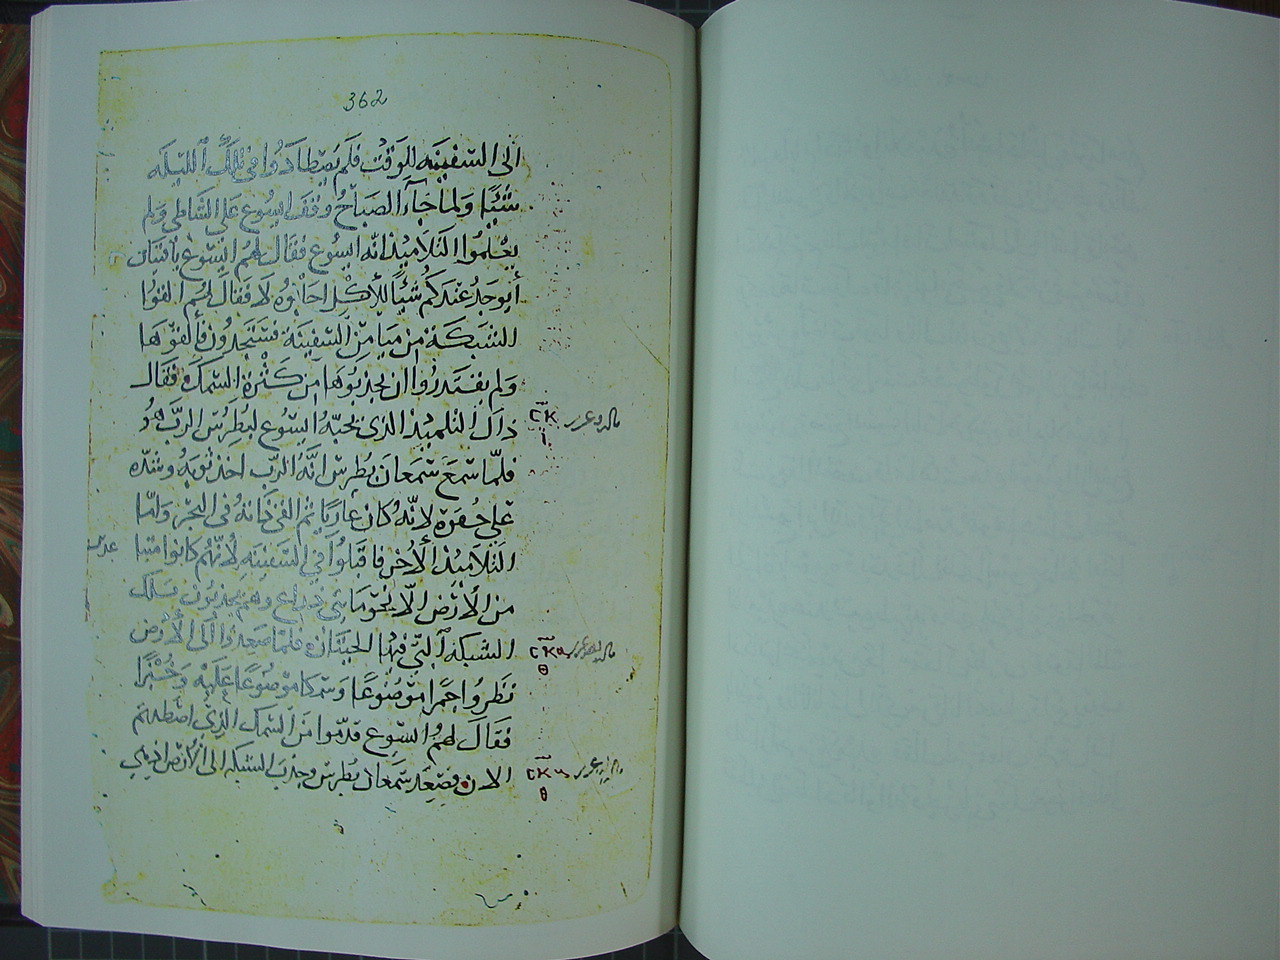 362
الى السفينه للوقت فلم يصطادوا في تلك الليله
شئيا ولما جآء الصباح وقف ايسوع على الشاطي ولم
يعلموا التلاميذ انه ايسوع فقال لهم ايسوع يا فتيان
أيوجد عندكم شئيا للأكل اجابوه لا فقال لهم القوا
الشبكة من ميامن السفينة فستجدون فألقوها
ولم يقتدروا ان يجذبوها من كثرة السمك فقال
ذاك التلميذ الذي يحبه ايسوع لبطرس الرب هو
فلما سمع سمعان بطرس انه الرب اخذ ثوبه وشده
على حقوه لانه كان عاريا ثم القى ذاته في البحر واما
التلاميذ الأخر فاقبلوا في السفينه لأنهم كانوا متبا
عدين
من الأرض الا نحو مايتي ذراع وهم يجذبون تلك
الشبكه التي فيها الحيتان فلما صعدوا الى الأرض
نظروا جمرا موضوعا وسمكا موضوعا عليه وخبزا
فقال لهم ايسوع قدموا من السمك الذي اصطدتم
الان فصعد سمعان بطرس وجذب الشبكه الى الأرض اذ هي